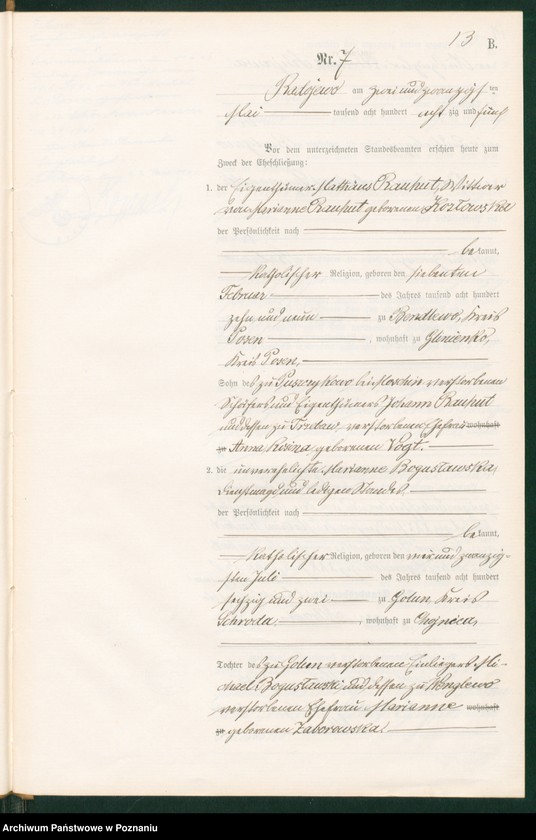 13 B.
Nr. 7
Radojewo am zwei und zwanzigsten
Mai tausend acht hundert acht zig und fünf
Vor dem unterzeichneten Standesbeamten erschien heute zum
Zweck der Eheschließung:
1. der Eigenthümer Mathäus Rauhut, Wittwer
von Marianne Rauhut geborenen Kozlowska
der Persönlichkeit nach
be kannt,
katholischer Religion, geboren den siebenten
Februar des Jahres tausend acht hundert
zehn und neun zu Bendlewo, Kreis
Posen, wohnhaft zu Glinienko,
Kreis Posen,
Sohn des zu Puszczykowo bei verstorbenen
Schäfers und Eigenthümers Johann Rauhut
und dessen zu verstorbenen Ehefrau wohnhaft
zu Anna Rosina geborenen Vogt.
2. die unverehelichte Marianne Bogusławska,
Dienstmagd und ledigen Standes
der Persönlichkeit nach
be kannt,
katholischer Religion, geboren den vier und zwanzig-
sten Juli des Jahres tausend acht hundert
sechzig und zwei zu Golun Kreis
Schroda, wohnhaft zu Chojnica,
Tochter des zu Golun verstorbenen Einliegers Mi-
chael Bogusławski und dessen zu Wenglewo
verstorbenen Ehefrau Marianne wohnhaft
zu geborenen Zaborowska.
Archiwum Państwowe w Poznaniu